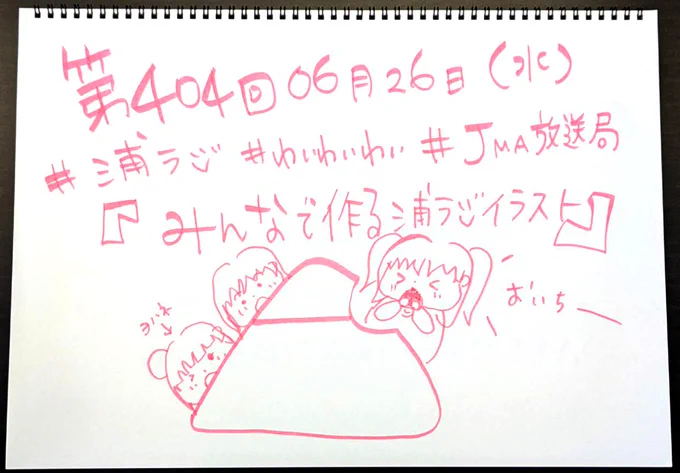 第404回06月26日(水)
#浦ラジ #わいわいわい #JMA放送局
『みんなで作る浦ラジイラスト』
おいちー